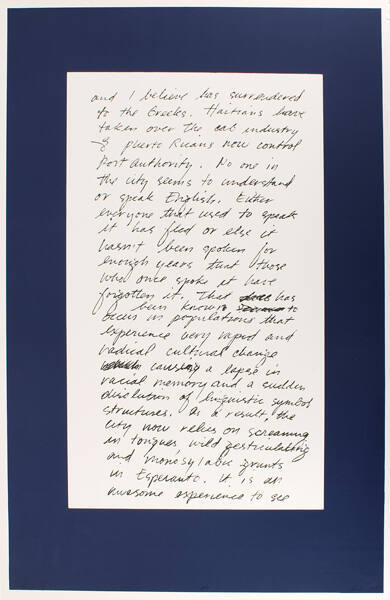 and I believe has surrendered
to the Greeks. Haitians have
taken over the cab industry
& puerto Ricans now control
Port Authority. No one in
the city seems to understand
or speak English. Either
everyone that used to speak
it has fled or else it
hasn't been spoken for
enough years that those
who once spoke it have
forgotten it. That has
been known to
occur in populations that
experience very rapid and
radical cultural change
causing a lapse in
racial memory and a sudden
disolution of linguistic symbol
structures. As a result, the
city now relies on screaming
in tongues wild gesticulating
and monosylabic grunts
in Esperanto. It is an
awesome experience to see